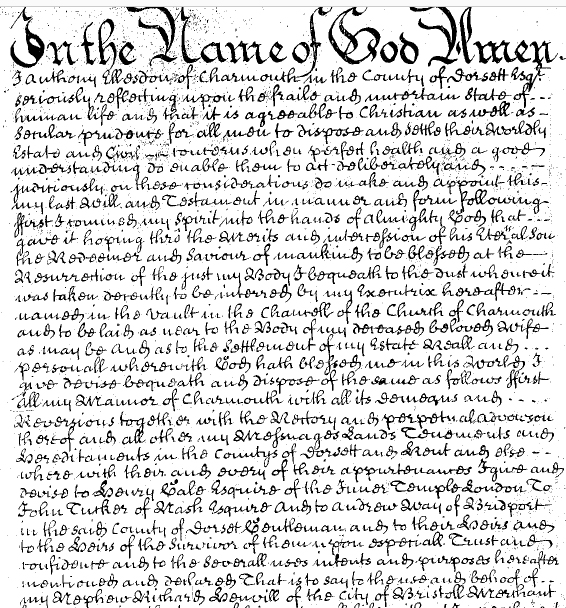 In the Name of God Amen.
I Anthony Ellesdon of Charmouth in the County of Dorsett Esqr.
seriously reflecting upon the fraile and uncertain state of - - -
human life and that it is agreeable to Christian as well as -
secular prudence for all men to dispose and settle their Worldly
Estate and Civil concerns when perfect health and a good -
understanding do enable them to act deliberately and - - - - -
judiciously on these considerations do make and appoint this -
my last Will and Testament in manner and form following -
ffirst I commend my Spirit into the hands of Almighty God that - - -
gave it hoping thrō the Merits and intercession of his Eternal Son
the Redeemer and Saviour of mankind to be blessed at the -
Resurrection of the just my Body I bequeath to the dust whence it
was taken decently to be interred by my Executrix hereafter -
named in the Vault in the Chancell of the Church of Charmouth
and to be laid as near to the Body of my deceased beloved Wife -
as may be And as to the Settlement of my Estate Reall and - - -
personall wherewith God hath blessed me in this World I
give devise bequeath and dispose of the same as follows ffirst
all my Mannor of Charmouth with all its demeans and - - - -
Reversions together with the Rectory and perpetual advowson
thereof and all other my Messuages Lands Tenements and
Hereditaments in the Countys of Dorsett and Kent and else - -
where with their and every of their appurtenances I give and
devise to Henry Hale Esquire of the Inner Temple London To
John Tucker of Nash Esquire And to Andrew Way of Bridport
in the said County of Dorset Gentleman and to their Heirs and
to the Heirs of the Survivor of them upon especiall Trust and
confidence and to the severall uses intents and purposes hereafter
mentioned and declared That is to say to the use and behoof of - -
my Nephew Richard Henvill of the City of Bristoll Merchant